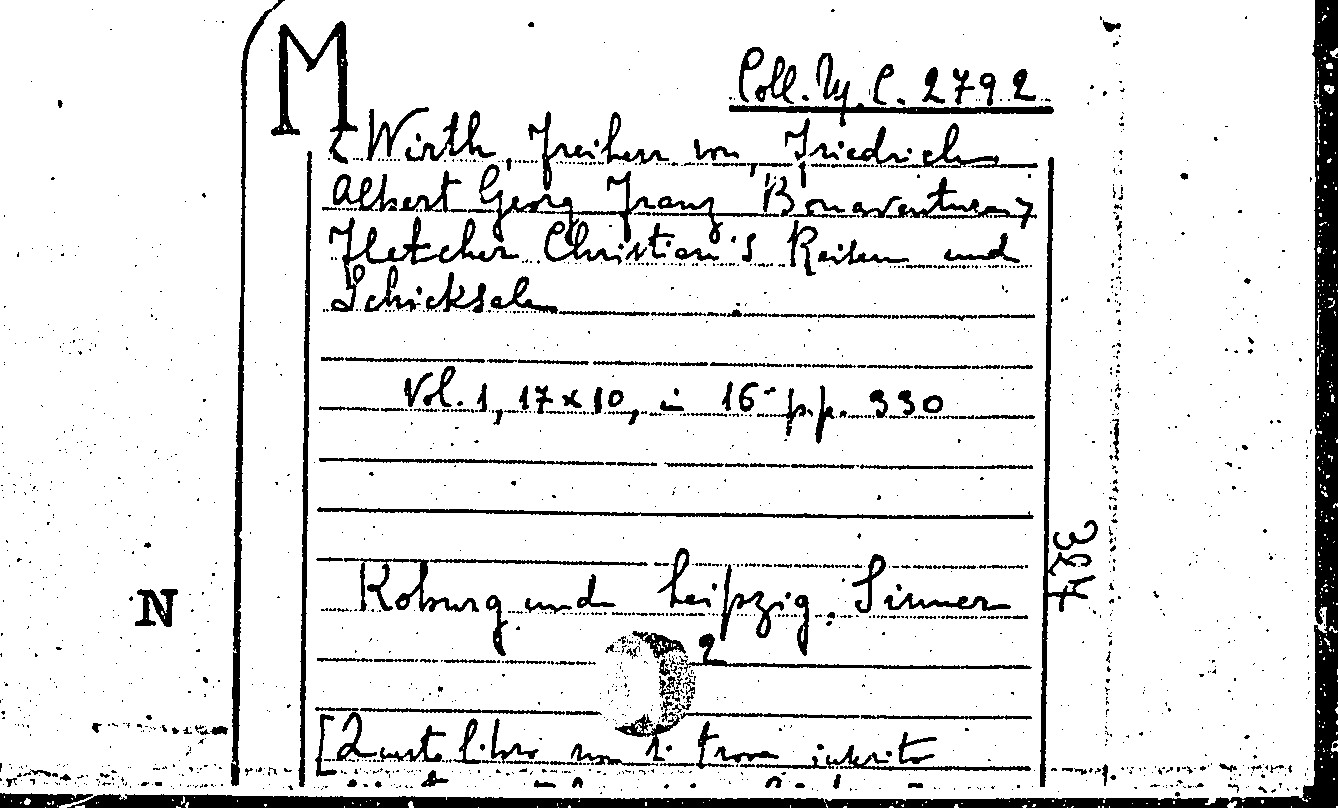 M
Coll. Ц. C. 2792
< Wirth, Freiherr von, Friedrich
Albert Georg Franz Bonaventura>
Fletcher Christian's Reisen und
Schicksale
Vol. 1, 17x10, in 16° pp. 330
Koburg und Leipzig. Sinner
2
[Questo libro non si trova inserito
N